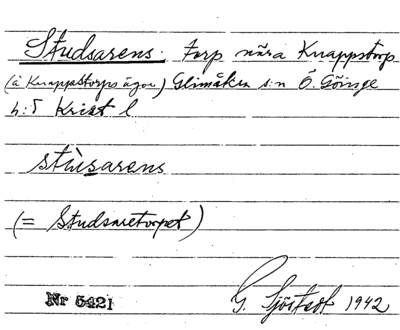 Studsarens. torp nära Knappstorp
(å Knappstorps ägor) Glimåkra s:n Ö. Göinge
h:d Krist l
stùsarens
(= Studsaretorpet)
Nr 5421
G. Sjöstedt 1942